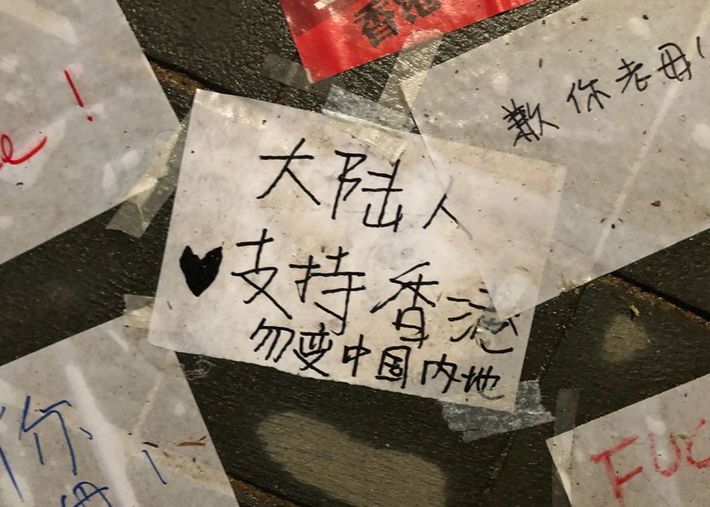 香港
歉你老母!
!
大陆人
♥支持香港
勿变中国内地
你
FUC